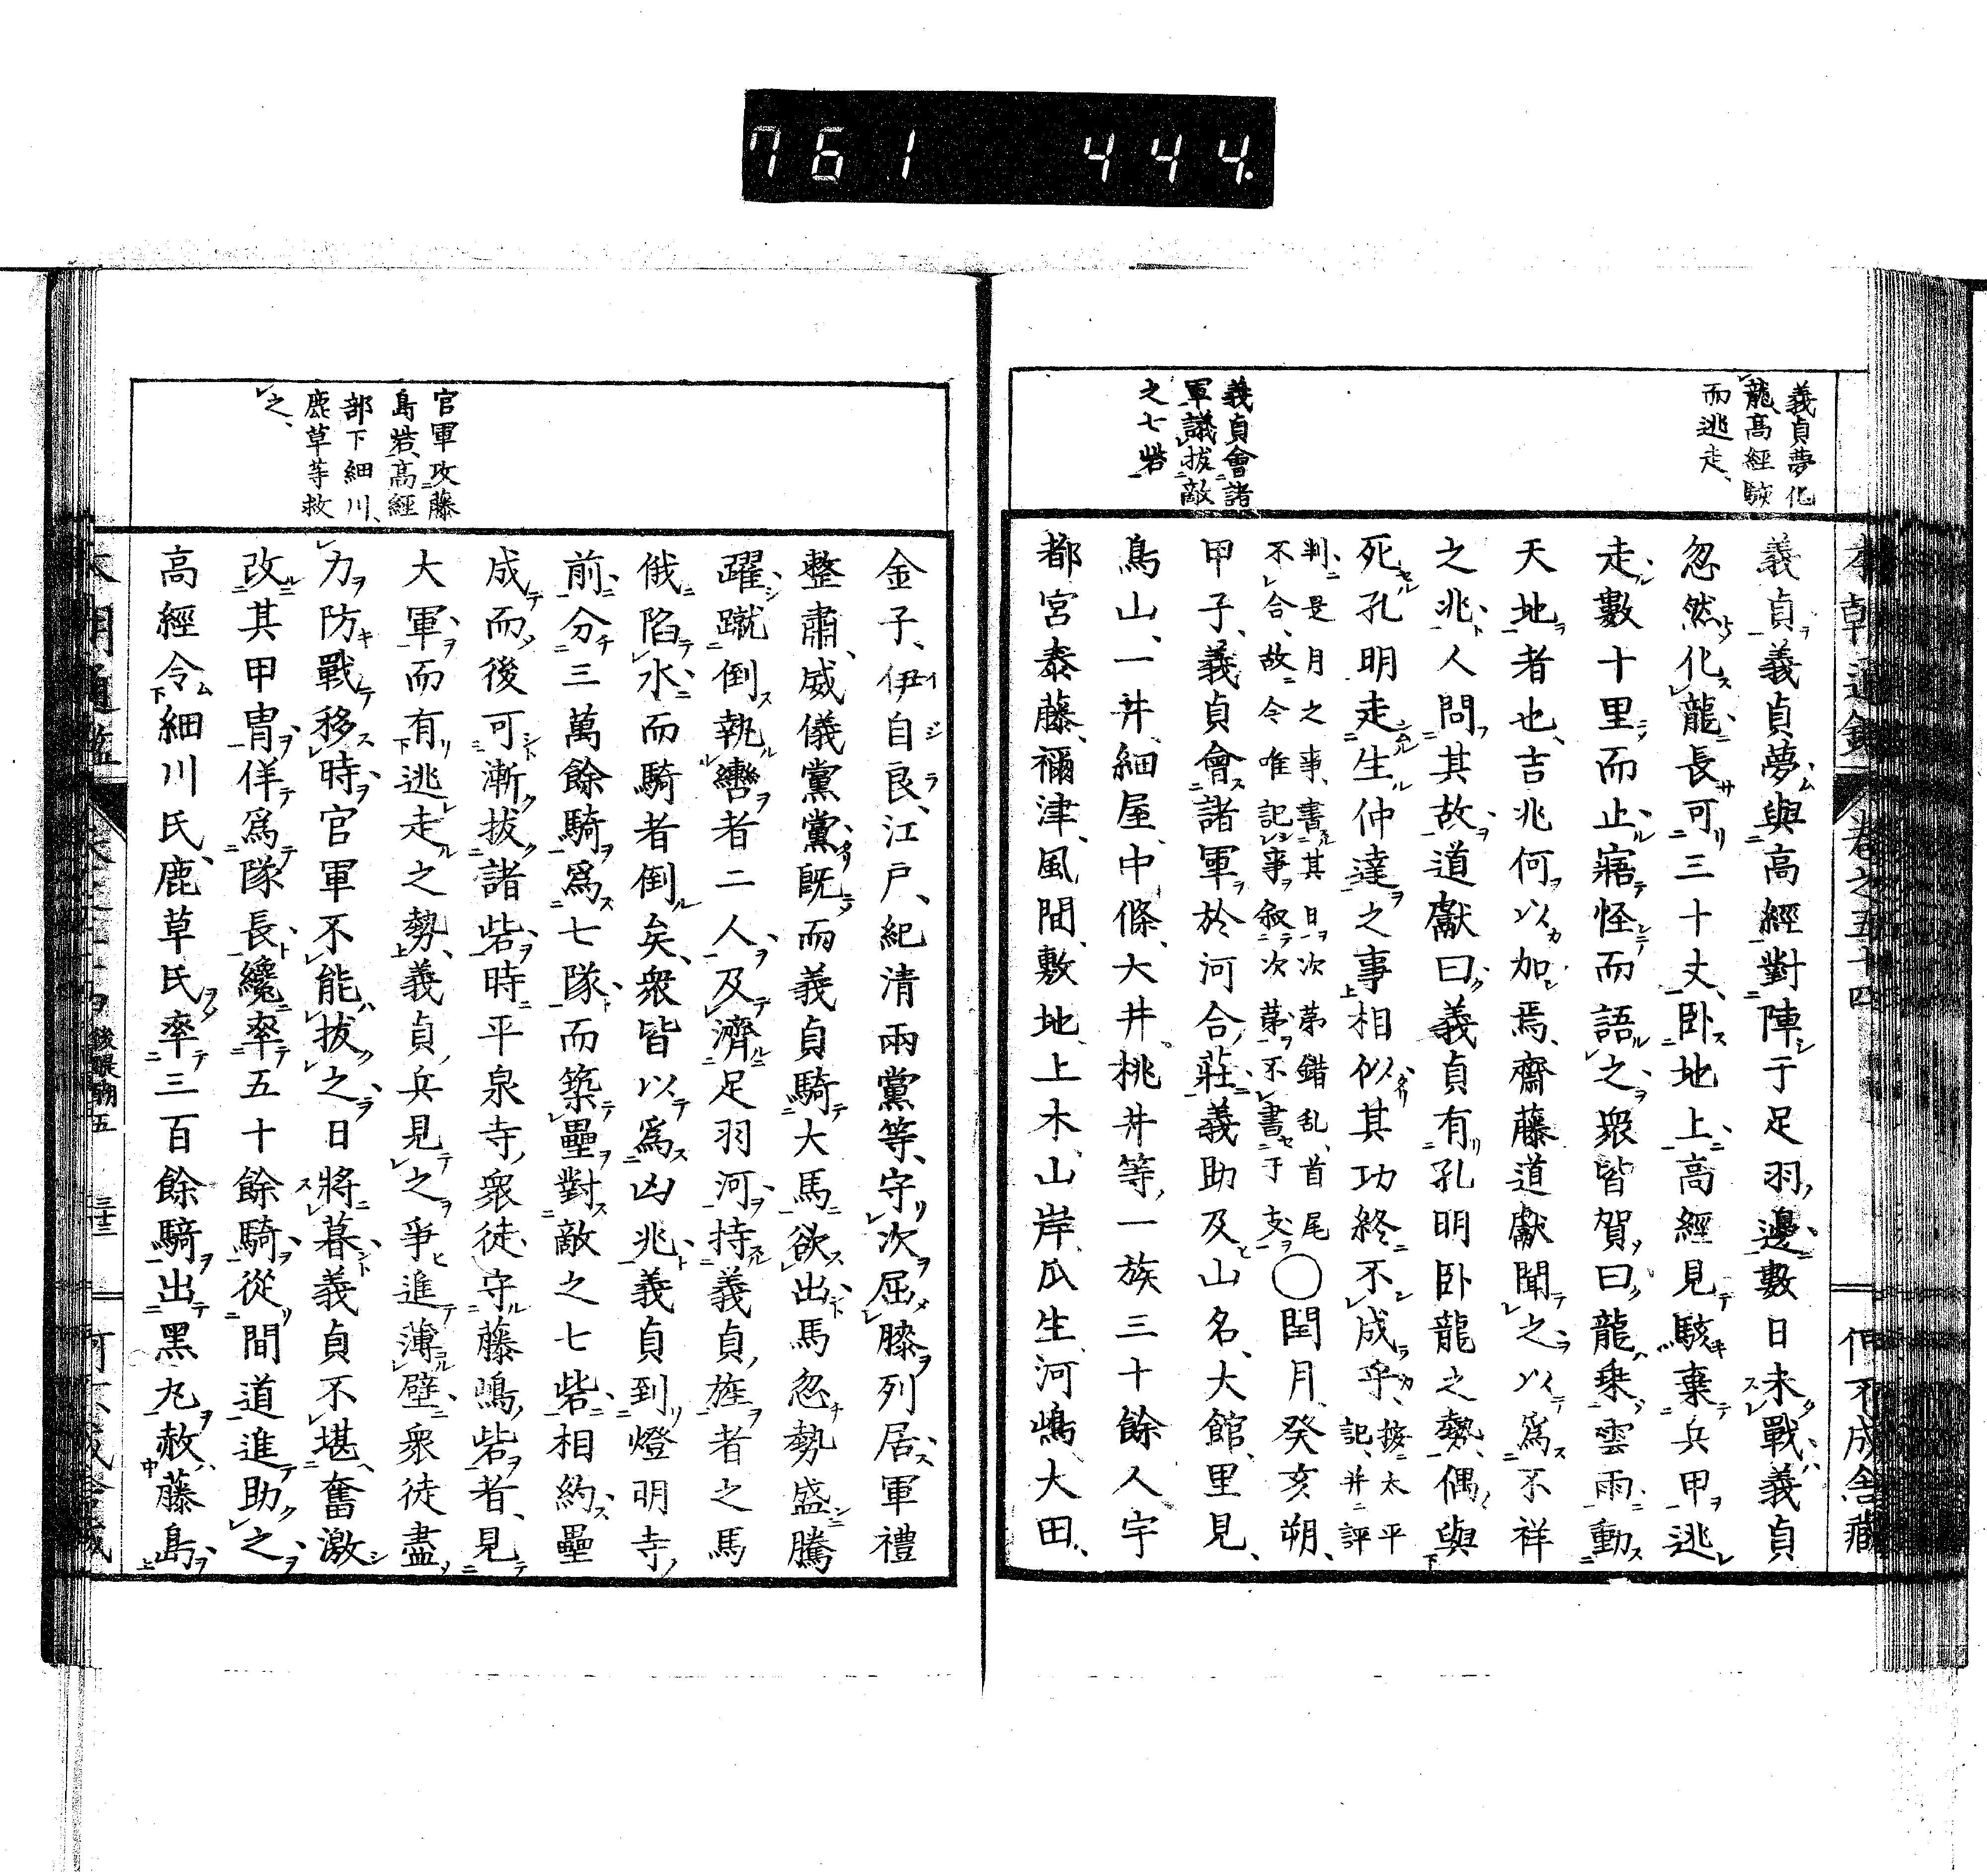 761 444.
本朝通鑑 卷之五十四 伺不成舎藏
義貞夢化
龍高經駭
而逃走、
義貞會諸
軍議拔敵
之七砦
義貞義貞夢與高經對陣于足羽邊數日未戰義貞
忽然化龍長可三十丈、臥地上高經見駭棄兵甲逃
走數十里而止寤怪而語之衆皆賀曰龍乗雲雨動
天地者也、吉兆何以加焉、齋藤道獻聞之以爲不祥
之兆人問其故道獻曰義貞有孔明臥龍之勢、偶與
死孔明走生仲達之事相似其功終不成乎、據太平記、并評
判是月之事、書其日次第錯乱、首尾不合、故令唯記事叙次第不書于支○閏月、癸亥朔、
甲子、義貞會諸軍於河合莊義助及山名、大館、里見、
鳥山、一井、細屋、中條、大井、桃井等、一族三十餘人宇
都宮泰藤、禰津、風間、敷地、上木、山岸、瓜生、河嶋、大田、
官軍攻藤
島砦、高經
部下細川、
鹿草等救
之、
金子、伊自良、江戸、紀清兩黨等、守次屈膝列居軍禮
整肅、威儀黨黨既而義貞騎大馬欲出馬忽勢盛騰
躍蹴倒執轡者二人、及濟足羽河持義貞旌者之馬
俄陷水而騎者倒矣、衆皆以爲凶兆義貞到燈明寺
前分三萬餘騎爲七隊而築壘對敵之七砦相約壘
成而後可漸拔諸砦時平泉寺衆徒守藤嶋砦者、見
大軍而有逃走之勢、義貞兵見之爭進薄壁衆徒盡
力防戰移時官軍不能拔之日將暮義貞不堪奮激
改其甲冑佯爲隊長纔率五十餘騎從間道進助之
高經令細川氏、鹿草氏率三百餘騎出黑丸赦藤島
後醍醐五 三十三